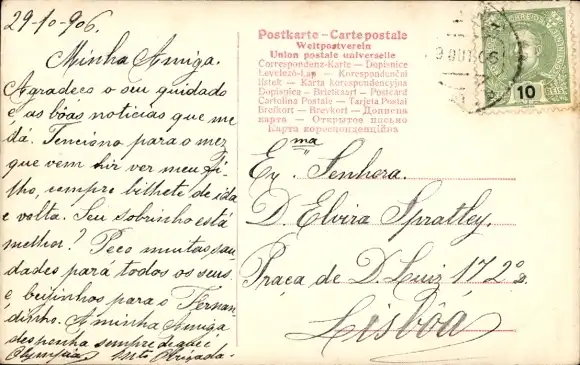 29-10-906.
Minha Amiga.
Agradeço o seu cuidado
e as bôas noticias que me
dá. Tenciono para o mez
que vem hir ver meu fi-
lho, compre bilhete de ida
e volta. Seu sobrinho está
melhor? Peço muitas sau
dades pará todos os seus
e beijinhos para o Fernan
dinho. A minha Amiga
desponha sempre de que é
Olympia Mto Obrigada.
Postkarte – Carte postale
Weltpostverein
Union postale universelle
Correspondenz-Karte – Dopisnice
Levelező-Lap – Korespondenční
lístek – Karta korespondencyjna
Dopisnica – Briefkaart – Postcard
Cartolina Postale – Tarjeta Postal
Brefkort – Brevkort – Дописна
карта – Открытое письмо
Карта кореспонденційна
10
Exma Senhora.
D. Elvira Spratley.
Praça de D. Luiz 17 2º D.
Lisbôa